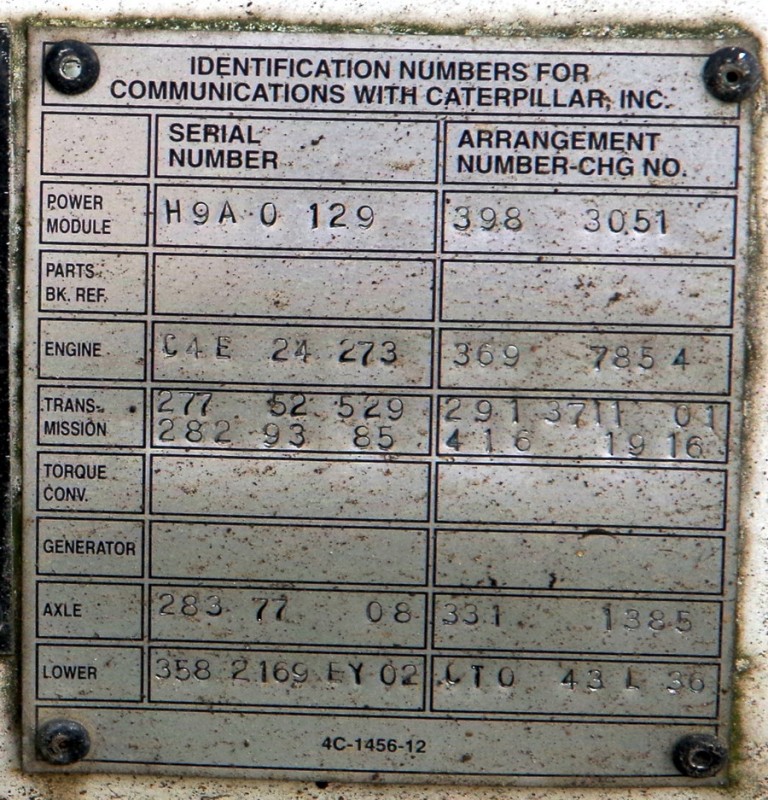 IDENTIFICATION NUMBERS FOR
COMMUNICATIONS WITH CATERPILLAR, INC.
SERIAL NUMBER
ARRANGEMENT NUMBER-CHG NO.
POWER MODULE H9A 0 129 398 3051
PARTS BK. REF.
ENGINE C4E 24 273 369 785 4
TRANS- 277 52 529 291 3711 01
MISSION 282 93 85 416 19 16
TORQUE CONV.
GENERATOR
AXLE 283 77 08 331 1385
LOWER 358 2169 EY 02 CTO 43 L 36
4C-1456-12